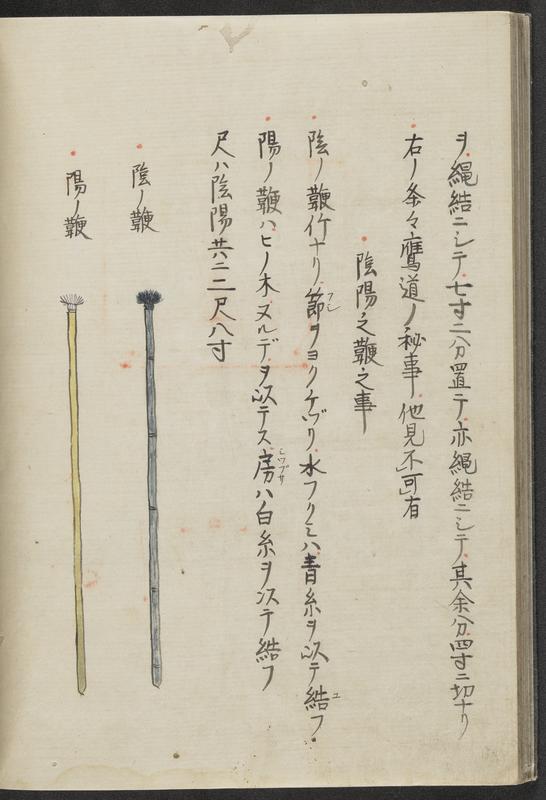 ヲ縄結ニシテ七寸二分置テ亦縄結ニシテ其余分四寸ニ切ナリ
右ノ条々鷹道ノ秘事他見不可有
陰陽之鞭之事
陰ノ鞭竹ナリ節ヲヨクケヅリ水フクミハ青糸ヲ以テ結フ
フシ
ユ
陽ノ鞭ハヒノ木ヌルデヲ以テス房ハ白糸ヲ以テ結フ
尺ハ陰陽共ニ二尺八寸
陰ノ鞭
陽ノ鞭